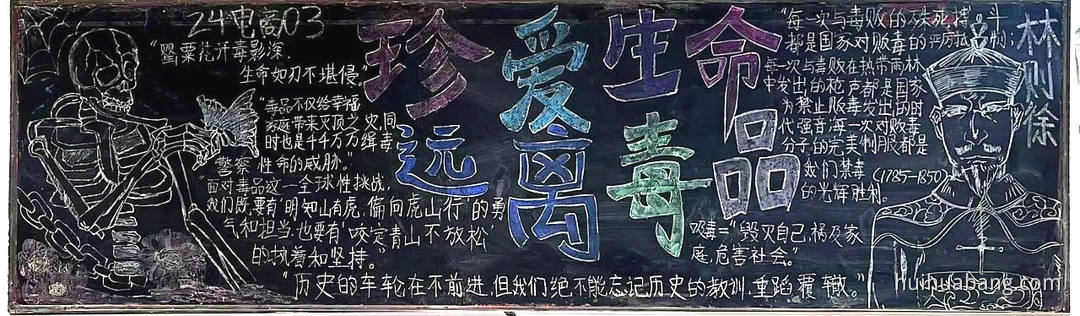 24电商03
"罂粟花开毒影深，
生命如刃不堪侵。"
"毒品不仅给幸福
家庭带来灭顶之灾，同
时也是千千万万缉毒
警察性命的威胁。"
"面对毒品这一全球性挑战，
我们既要有'明知山有虎，偏向虎山行'的勇
气和担当，也要有'咬定青山不放松'
的执着和坚持。"
珍爱生命
远离毒品
"每一次与毒贩的殊死搏斗
都是国家对贩毒的严厉
每一次与毒贩在热带雨林
中发出的枪声都是国家
为禁止贩毒发出的时
代强音，每一次对贩毒
分子的完美制服都是
我们禁毒
的光辉胜利。
吸毒="毁灭自己，祸及家
庭，危害社会。
"历史的车轮在不前进，但我们绝不能忘记历史的教训，重蹈覆辙。"
林则徐
(1785-1850)
huihuabang.com